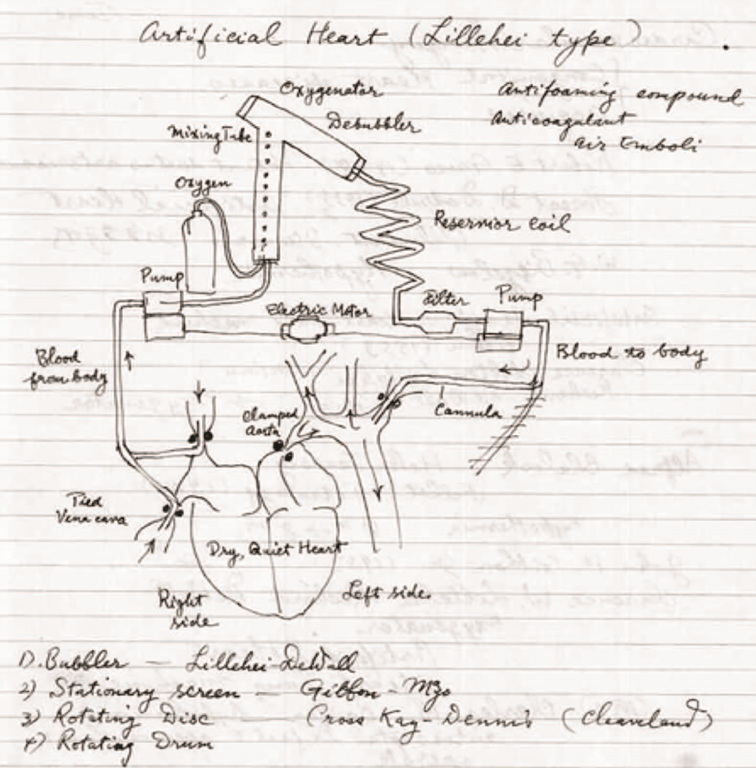 Artificial Heart (Lillehei type).
Oxygenator
Antifoaming compound
Mixing Tube
Debubbler
Anticoagulant
air Emboli
Oxygen
Reservior coil
Pump
Electric Motor
Filter
Pump
Blood from body
Blood to body
Clamped
Aorta
Cannula
Tied
Vena cava
Dry, Quiet Heart
Right
side
Left side
1). Bubbler — Lillehei-DeWall
2) Stationary screen — Gibbon-
3) Rotating Disc — Cross Kay-Dennis (Cleaveland)
4) Rotating Drum